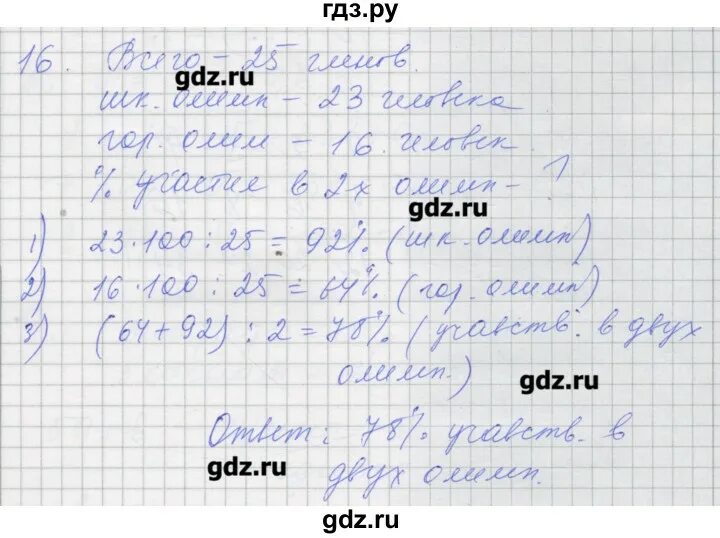 гдз.ру
16. Всего - 25 членов.
gdz.ru
шк. олимп - 23 человека
гор. олим - 16 человек
% участие в 2х олимп - ?
gdz.ru
1) 23·100:25 = 92% (шк. олимп)
2) 16·100:25 = 64% (гор. олимп)
3) (64+92):2 = 78% (учавств. в двух
олимп.)
gdz.ru
Ответ: 78% учавств. в
gdz.ru
двух олимп.
gdz.ru